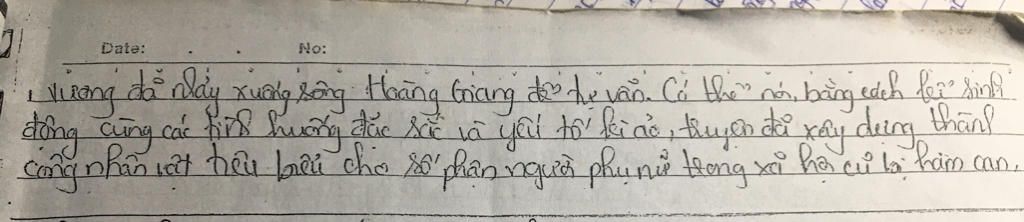 Date: . . No:
, vương đã nhảy xuống sông Hoàng Giang để tự vẫn. Có thể nói, bằng cách kể sinh
động cùng các tình huống đặc sắc và yếu tố kì ảo, truyện đã xây dựng thành
công nhân vật tiêu biểu cho số phận người phụ nữ trong xã hội cũ bị hàm oan.